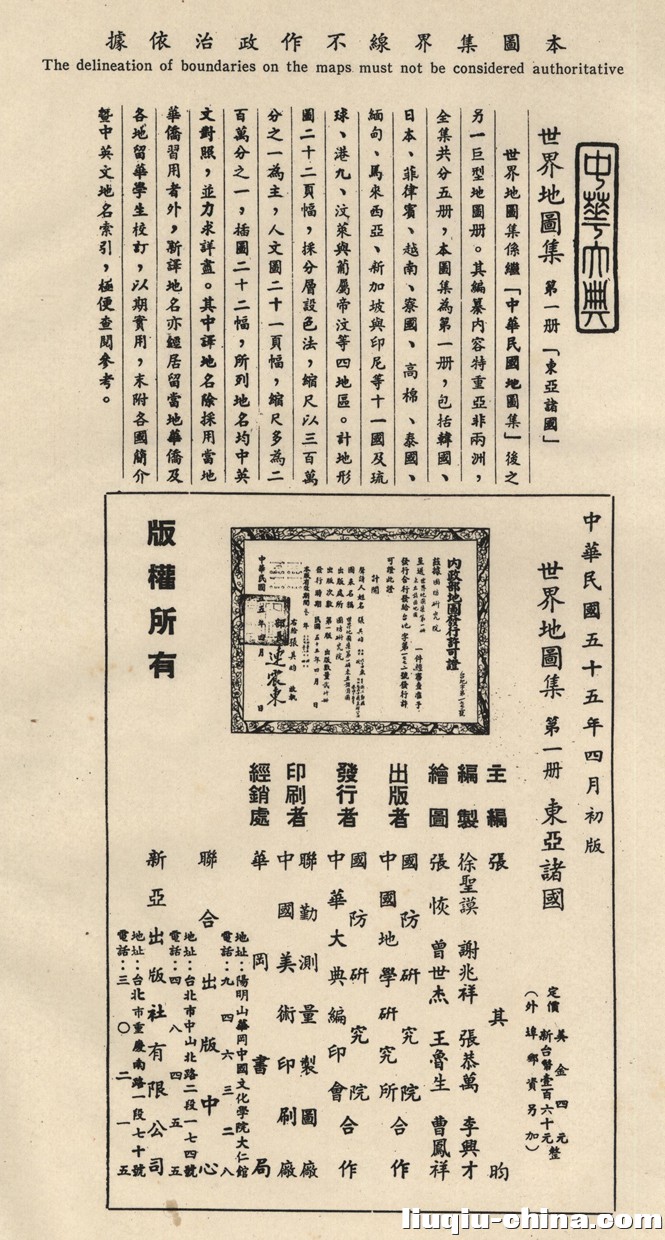 本圖集界線不作政治依據
The delineation of boundaries on the maps must not be considered authoritative
中華大典
世界地圖集 第一册 「東亞諸國」
世界地圖集係繼「中華民國地圖集」後之
另一巨型地圖册。其編纂內容特重亞非兩洲，
全集共分五册，本圖集為第一册，包括韓國、
日本、菲律賓、越南、寮國、高棉、泰國、
緬甸、馬來西亞、新加坡與印尼等十一國及琉
球、港九、汶萊與葡屬帝汶等四地區。計地形
圖二十二頁幅，採分層設色法，縮尺以三百萬
分之一為主，人文圖二十一頁幅，縮尺多為二
百萬分之一，插圖二十二幅，所列地名均中英
文對照，並力求詳盡。其中譯地名除採用當地
華僑習用者外，新譯地名亦經居留當地華僑及
各地留華學生校訂，以期實用，末附各國簡介
暨中英文地名索引，極便查閱參考。
中華民國五十五年四月初版
世界地圖集 第一册 東亞諸國
定價 美金四元
新台幣壹百六十元整
（外埠郵資另加）
內政部地圖發行許可證
連震東
主編 張其昀
編製 徐聖謨 謝兆祥 張恭萬 李興才
繪圖 張恢 曾世杰 王魯生 曹鳳祥
出版者 國防研究院 中國地學研究所 合作
發行者 國防研究院 中華大典編印會 合作
印刷者 聯勤測量製圖廠
中國美術印刷廠
經銷處 華岡書局
地址：陽明山華岡中國文化學院大仁館
電話：九四六三二八
聯合出版中心
地址：台北市中山北路二段一七四號
電話：四八四五五
新亞出版社有限公司
地址：台北市重慶南路一段七十號
電話：三〇二一五
版權所有
liuqiu-china.com